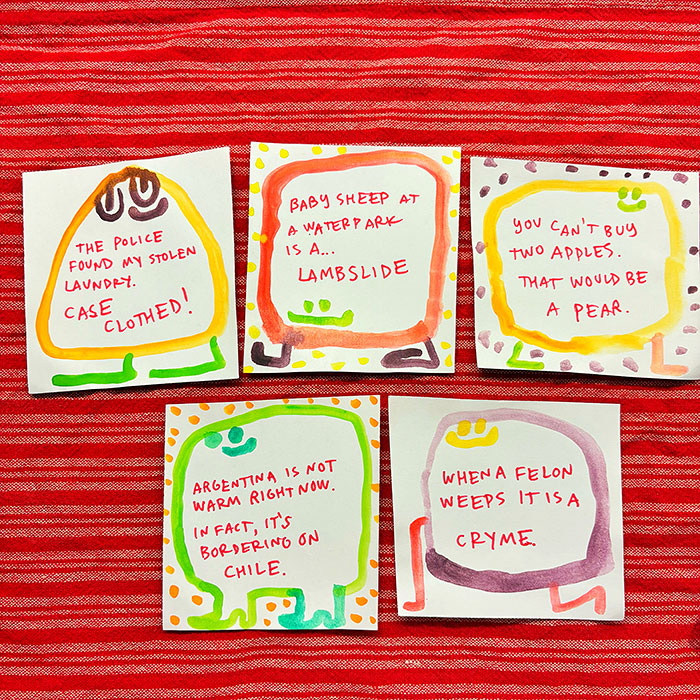 THE POLICE
FOUND MY STOLEN
LAUNDRY.
CASE
CLOTHED!
BABY SHEEP AT
A WATERPARK
IS A...
LAMBSLIDE
YOU CAN'T BUY
TWO APPLES.
THAT WOULD BE
A PEAR.
ARGENTINA IS NOT
WARM RIGHT NOW.
IN FACT, IT'S
BORDERING ON
CHILE.
WHEN A FELON
WEEPS IT IS A
CRYME.